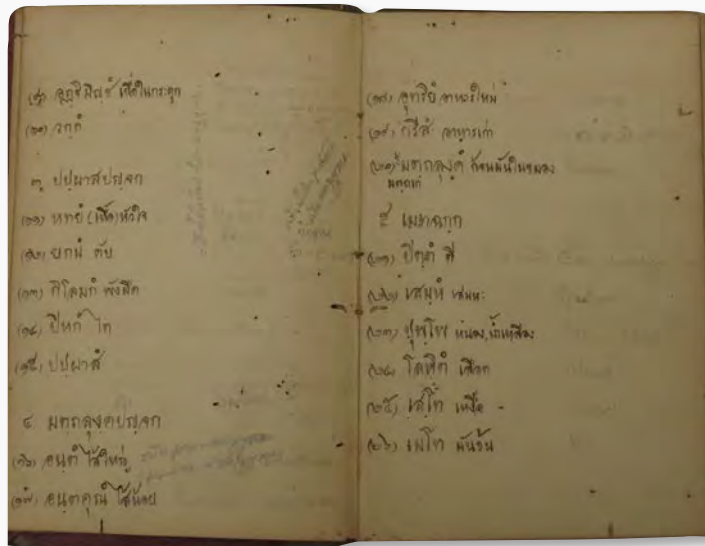 (๙) อฏฺฐิมิญฺชํ เยื่อในกระดูก
(๑๐) วกฺกํ
๓ ปปฺผาสปญฺจก
(๑๑) หทยํ (เนื้อ) หัวใจ
(๑๒) ยกนํ ตับ
(๑๓) กิโลมกํ พังผืด
(๑๔) ปิหกํ ไต
(๑๕) ปปฺผาสํ
๔ มตฺถลุงฺคปญฺจก
(๑๖) อนฺตํ ไส้ใหญ่
(๑๗) อนฺตคุณํ ไส้น้อย
(๑๘) อุทริยํ อาหารใหม่
(๑๙) กรีสํ อาหารเก่า
(๒๐) มตฺถลุงฺคํ ก้อนมันในสมอง
๕ เมทฉกฺก
(๒๑) ปิตฺตํ ดี
(๒๒) เสมฺหํ เสมหะ
(๒๓) ปุพฺโพ หนอง, น้ำเหลือง
(๒๔) โลหิตํ เลือด
(๒๕) เสโท เหงื่อ -
(๒๖) เมโท มันข้น